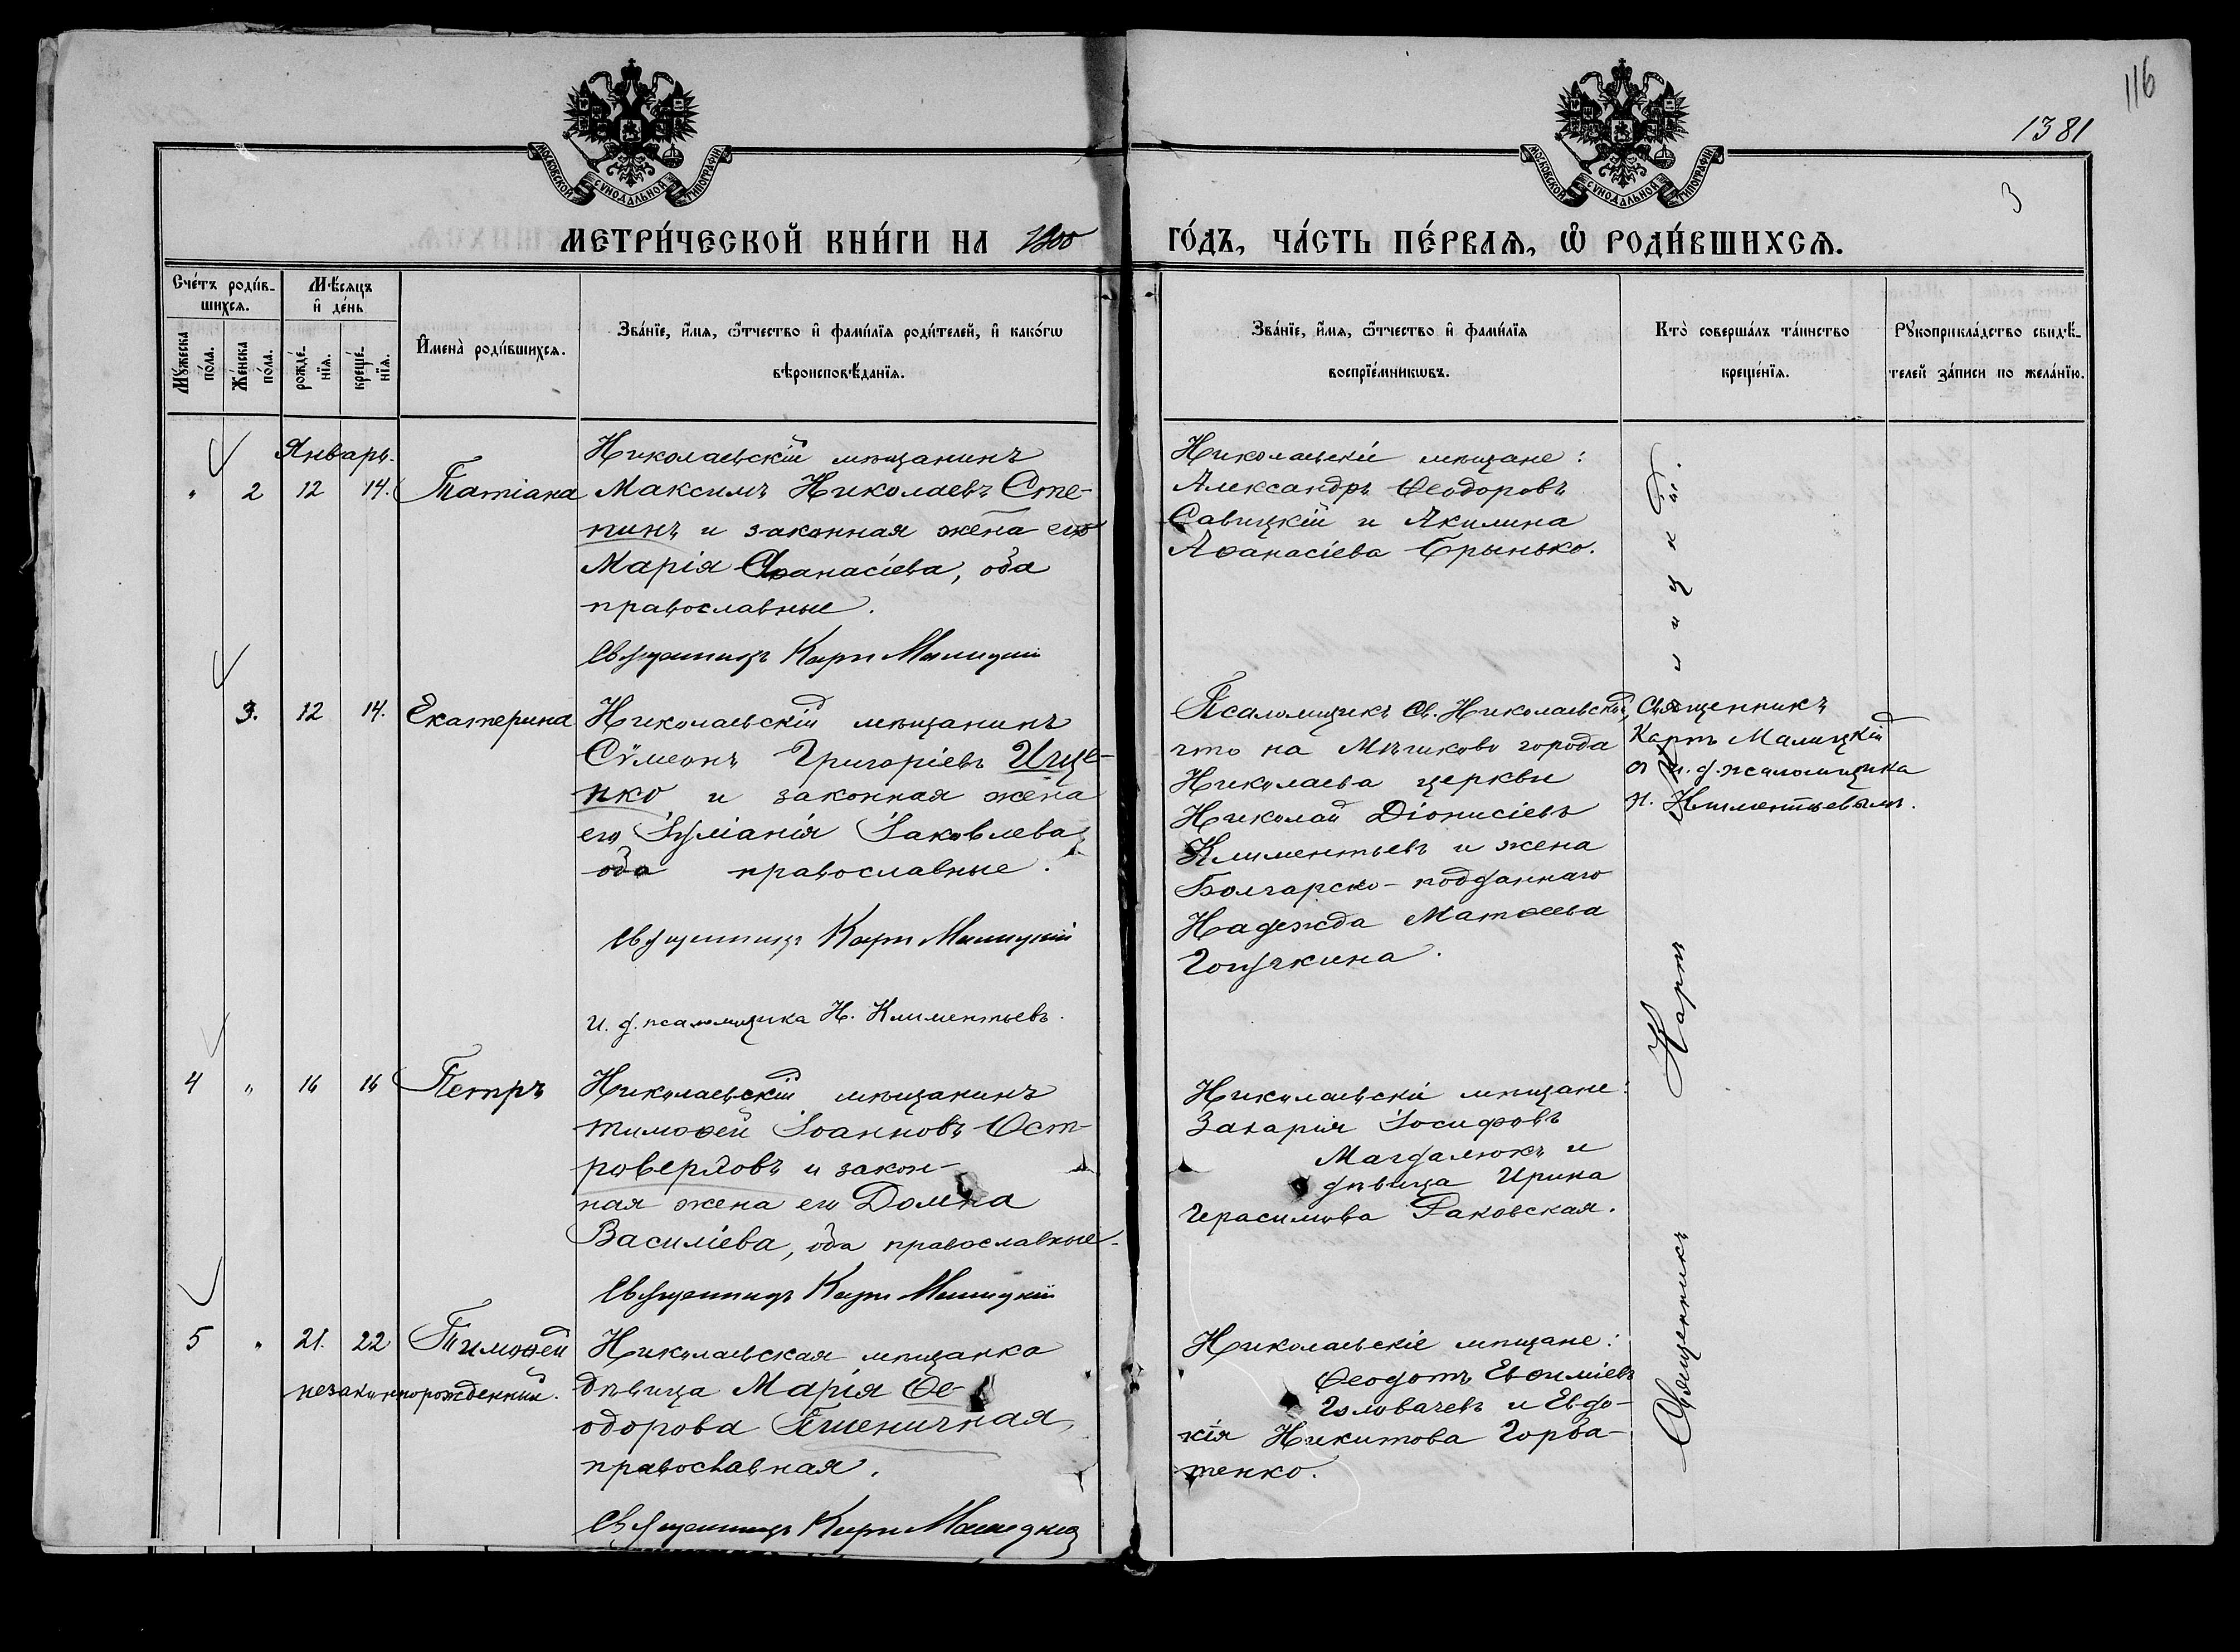 116
1381
3
МОСКОВСКОЙ СѴНОДАЛЬНОЙ ТИПОГРАФІИ
МОСКОВСКОЙ СѴНОДАЛЬНОЙ ТИПОГРАФІИ
МЕТРИ́ЧЕСКОЙ КНИ́ГИ НА 1900 ГО́ДЪ, ЧА́СТЬ ПЕ́РВАѦ, Ѡ РОДИ́ВШИХСѦ.
Сче́тъ роди́в-
шихсѧ.
Мѣсѧцъ
и҆ де́нь
Мꙋ́жеска
по́ла.
Же́нска
по́ла.
рожде́-
нїѧ.
креще́-
нїѧ.
И҆мена̀ роди́вшихсѧ.
Зва́нїе, и҆́мѧ, ѻ҆́тчество и҆ фами́лїѧ роди́телей, и҆ како́гѡ
вѣроисповѣ́данїѧ.
Зва́нїе, и҆́мѧ, ѻ҆́тчество и҆ фами́лїѧ
воспрїе́мникѡвъ.
Кто̀ соверша́лъ та́инство
креще́нїѧ.
Рꙋкоприкла́дство свидѣ́-
телей за́писи по жела́нїю.
Январь.
" 2 12 14. Татіана
Николаевскій мѣщанинъ
Максимъ Николаевъ Сте-
пинъ и законная жена его
Марія Аѳанасіева, оба
православные.
Священникъ Карпъ Малицкій
Николаевскіе мѣщане:
Александръ Ѳеодоровъ
Савицкій и Акилина
Аѳанасіева Брынько.
3. 12 14. Екатерина
Николаевскій мѣщанинъ
Сѵмеонъ Григоріевъ Ище-
нко и законная жена
его Іуліанія Іаковлева,
оба православные.
Священникъ Карпъ Малицкій
и. д. псаломщика Н. Климентьевъ.
Псаломщикъ Св. Николаевской,
что на Мѣшково города
Николаева церкви
Николай Діонисіевъ
Климентьевъ и жена
Болгарско-подданнаго
Надежда Матѳеева
Священникъ
Карпъ Малицкій
и. д. псаломщика
Н. Климентьевымъ.
4 " 16 16 Петръ
Николаевскій мѣщанинъ
Тимоѳей Іоанновъ Ост-
роверховъ и закон-
ная жена его Домна
Василіева, оба православные.
Священникъ Карпъ Малицкій
Николаевскіе мѣщане:
Захарія Іосифовъ
Магдалюкъ и
дѣвица Ирина
Герасимова Раковская.
5 " 21. 22 Тимоѳей
незаконнорожденный.
Николаевская мѣщанка
дѣвица Марія Ѳе-
одорова Пшеничная,
православная.
Священникъ Карпъ Малицкій
Николаевскіе мѣщане:
Ѳеодотъ Евѳиміевъ
Головачевъ и Евдо-
кія Никитова Горба-
тенко.
Священникъ Карпъ Малицкій.